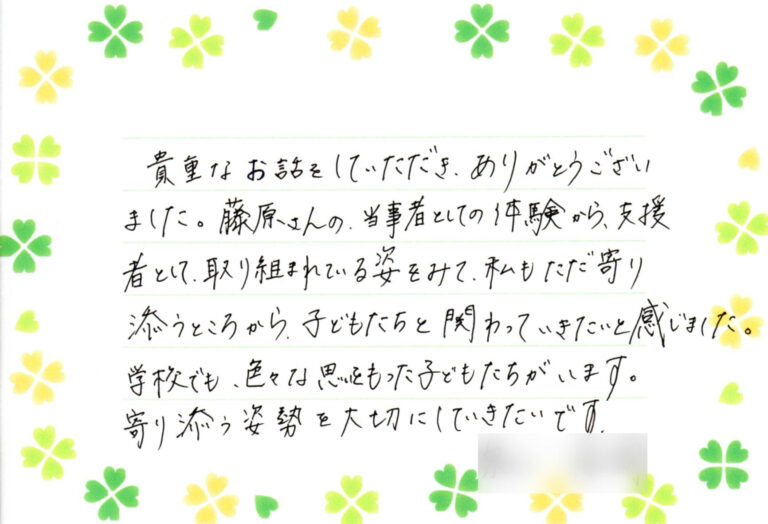 貴重なお話をしていただき、ありがとうござい
ました。藤原さんの、当事者としての体験から、支援
者として、取り組まれている姿をみて、私もただ寄り
添うところから、子どもたちと関わっていきたいと感じました。
学校でも、色々な思いをもった子どもたちがいます。
寄り添う姿勢を大切にしていきたいです。